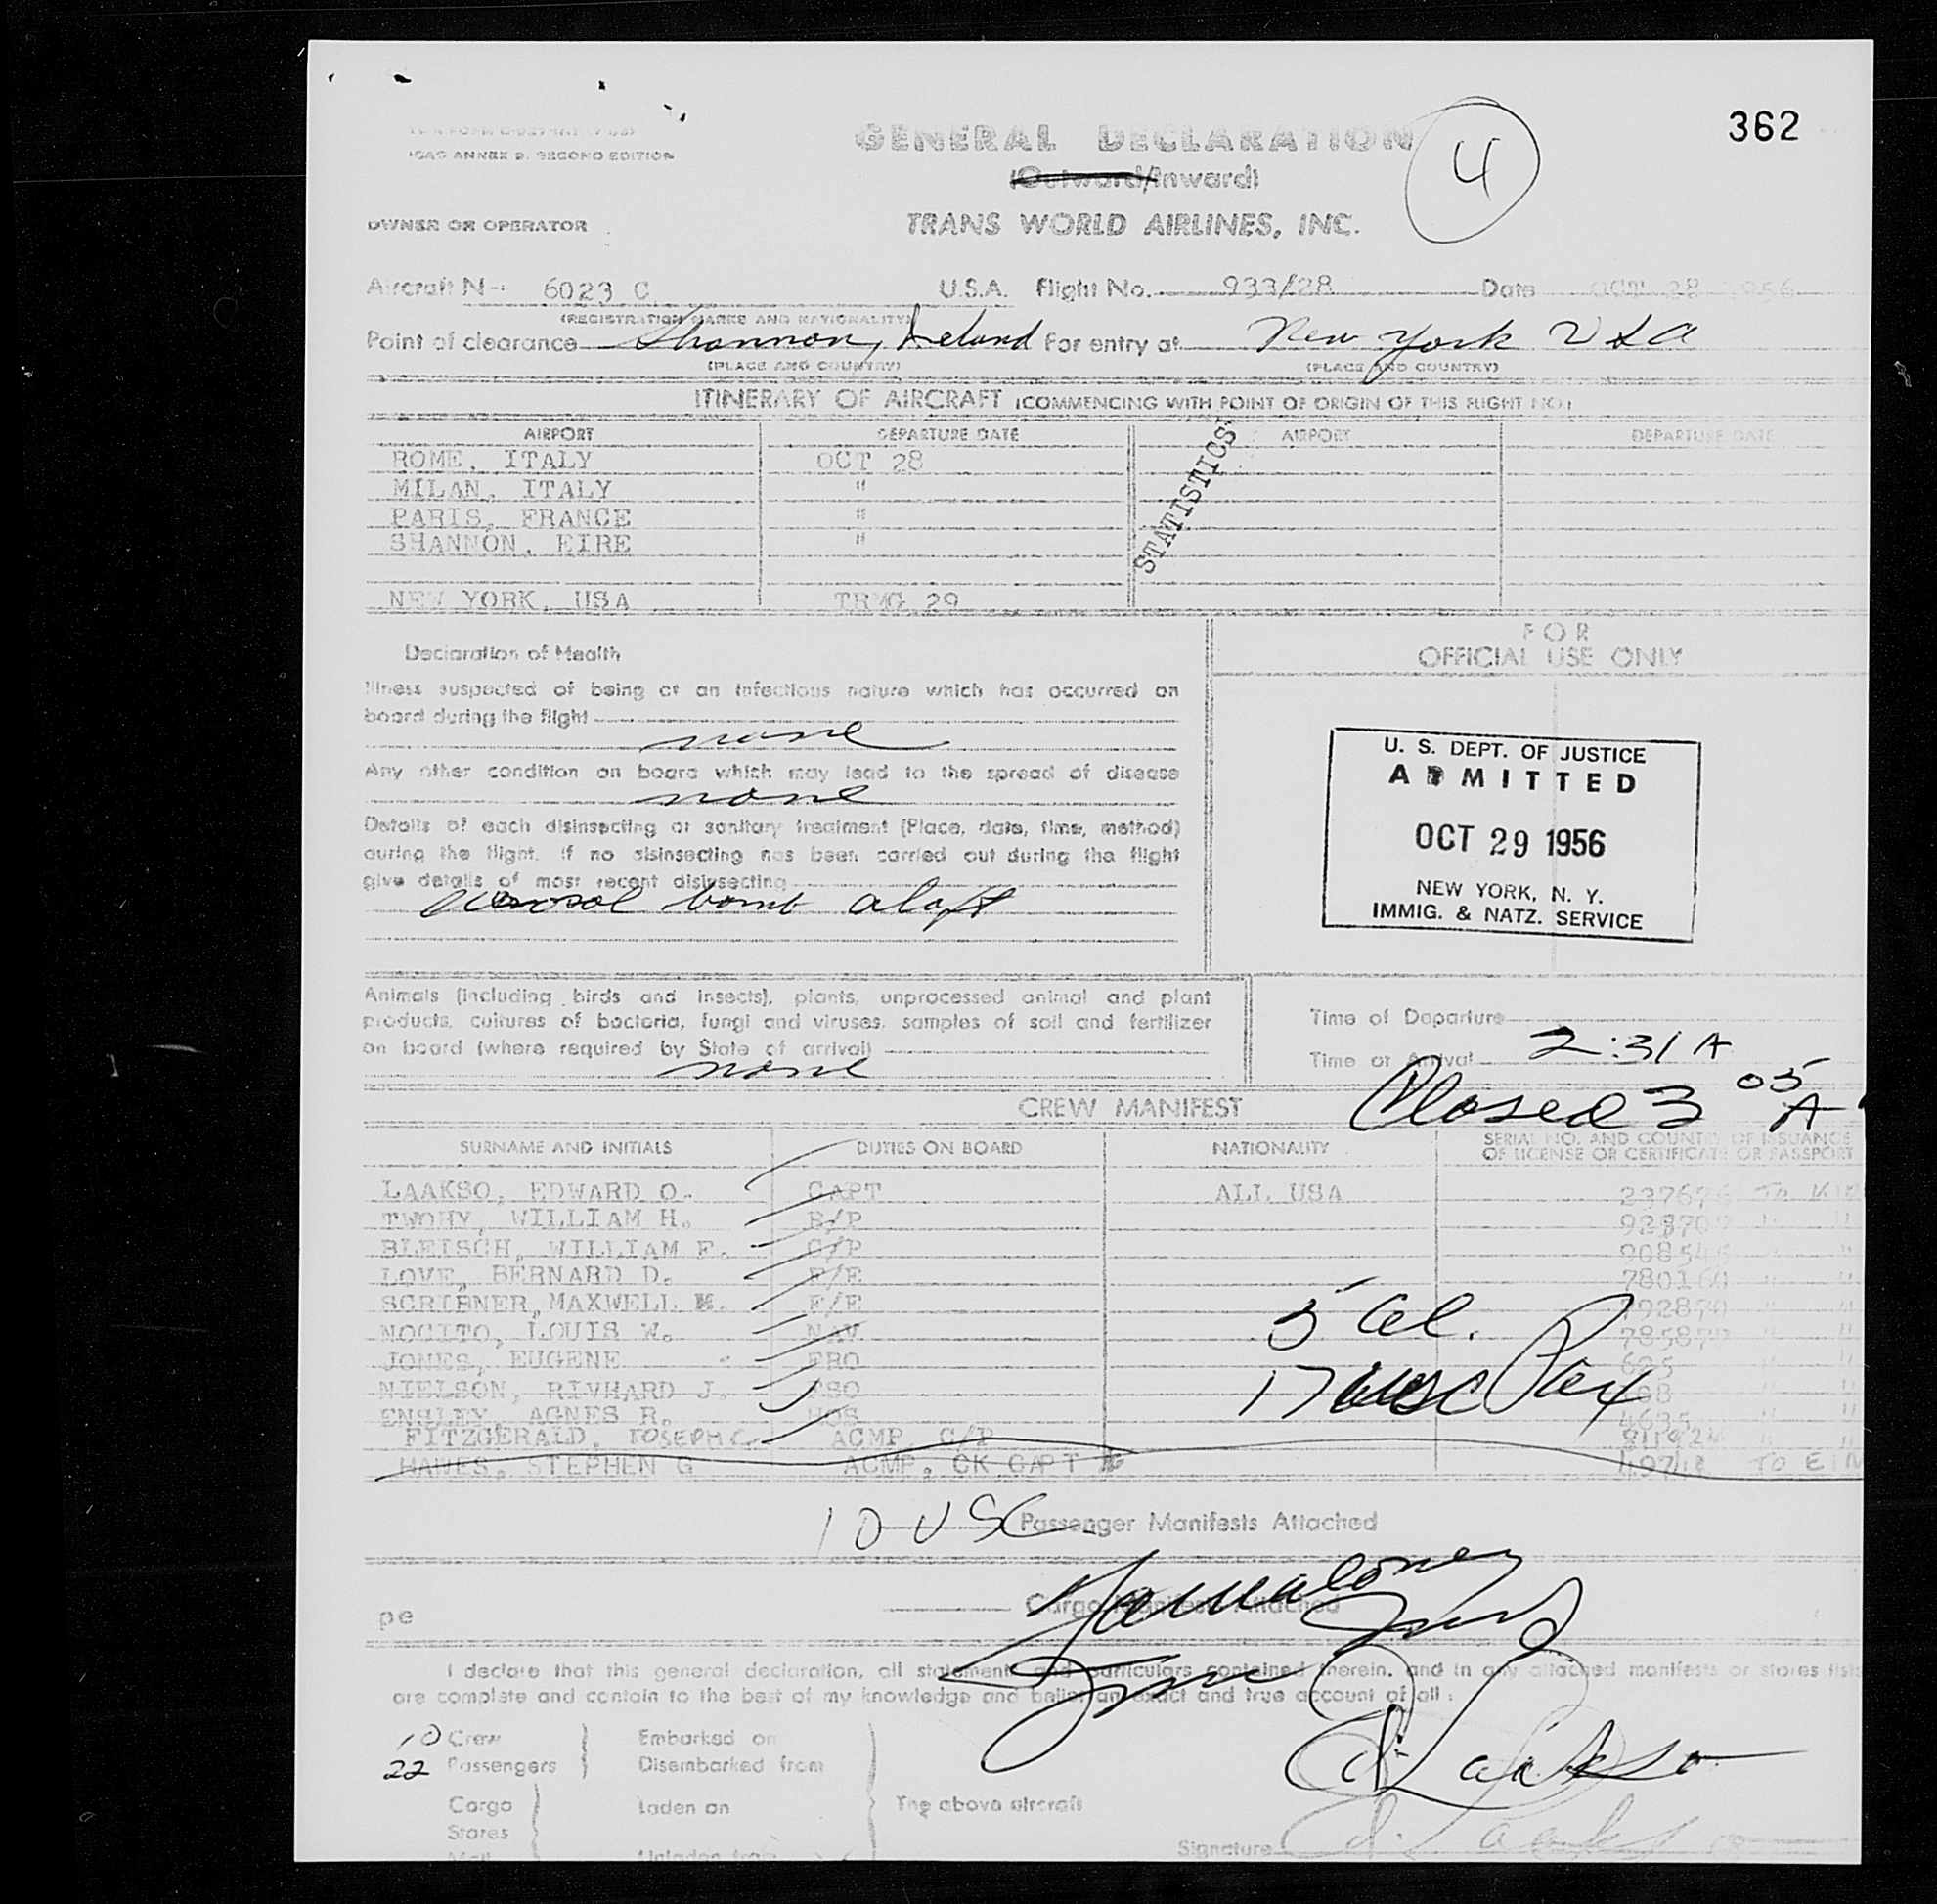 362
ICAO ANNEX 9, SECOND EDITION
GENERAL DECLARATION
4
(Outward/Inward)
OWNER OR OPERATOR
TRANS WORLD AIRLINES, INC.
Aircraft N- 6023 C U.S.A. Flight No. 933/28 Date OCT 28 1956
(REGISTRATION MARKS AND NATIONALITY)
Point of clearance Shannon, Ireland For entry at New York USA
(PLACE AND COUNTRY) (PLACE AND COUNTRY)
ITINERARY OF AIRCRAFT (COMMENCING WITH POINT OF ORIGIN OF THIS FLIGHT NO.)
AIRPORT DEPARTURE DATE AIRPORT DEPARTURE DATE
ROME, ITALY OCT 28
MILAN, ITALY "
PARIS, FRANCE "
SHANNON, EIRE "
STATISTICS
NEW YORK, USA TRMG 29
Declaration of Health
Illness suspected of being of an infectious nature which has occurred on
board during the flight
none
Any other condition on board which may lead to the spread of disease
none
Details of each disinsecting or sanitary treatment (Place, date, time, method)
during the flight. If no disinsecting has been carried out during the flight
give details of most recent disinsecting
aerosol bomb aloft
FOR
OFFICIAL USE ONLY
U. S. DEPT. OF JUSTICE
ADMITTED
OCT 29 1956
NEW YORK, N. Y.
IMMIG. & NATZ. SERVICE
Animals (including birds and insects), plants, unprocessed animal and plant
products, cultures of bacteria, fungi and viruses, samples of soil and fertilizer
on board (where required by State of arrival)
none
Time of Departure
Time of Arrival 2:31 A
Closed 3 05 A
CREW MANIFEST
SURNAME AND INITIALS DUTIES ON BOARD NATIONALITY SERIAL NO. AND COUNTRY OF ISSUANCE
OF LICENSE OR CERTIFICATE OR PASSPORT
LAAKSO, EDWARD O. CAPT ALL USA 237676
TWOHY, WILLIAM H.
BLEISCH, WILLIAM F. C/P
LOVE, BERNARD D. F/E
SCRIBNER, MAXWELL M. F/E
NOCITO, LOUIS W. NAV
JONES, EUGENE FRO
NIELSON, RIVHARD J. PSO
ENSLEY, AGNES R. HOS 4635
FITZGERALD, JOSEPH C. ACMP. C/P
HAWES, STEPHEN G ACMP, CK CAPT
5 al.
17 usc Pax
10 USC Passenger Manifests Attached
Cargo Manifests Attached
pe
I declare that this general declaration, all statements and particulars contained therein, and in any attached manifests or stores lists
are complete and contain to the best of my knowledge and belief an exact and true account of all:
10 Crew Embarked on
22 Passengers Disembarked from
Cargo Laden on The above aircraft
Stores
Mail Unladen from
Signature